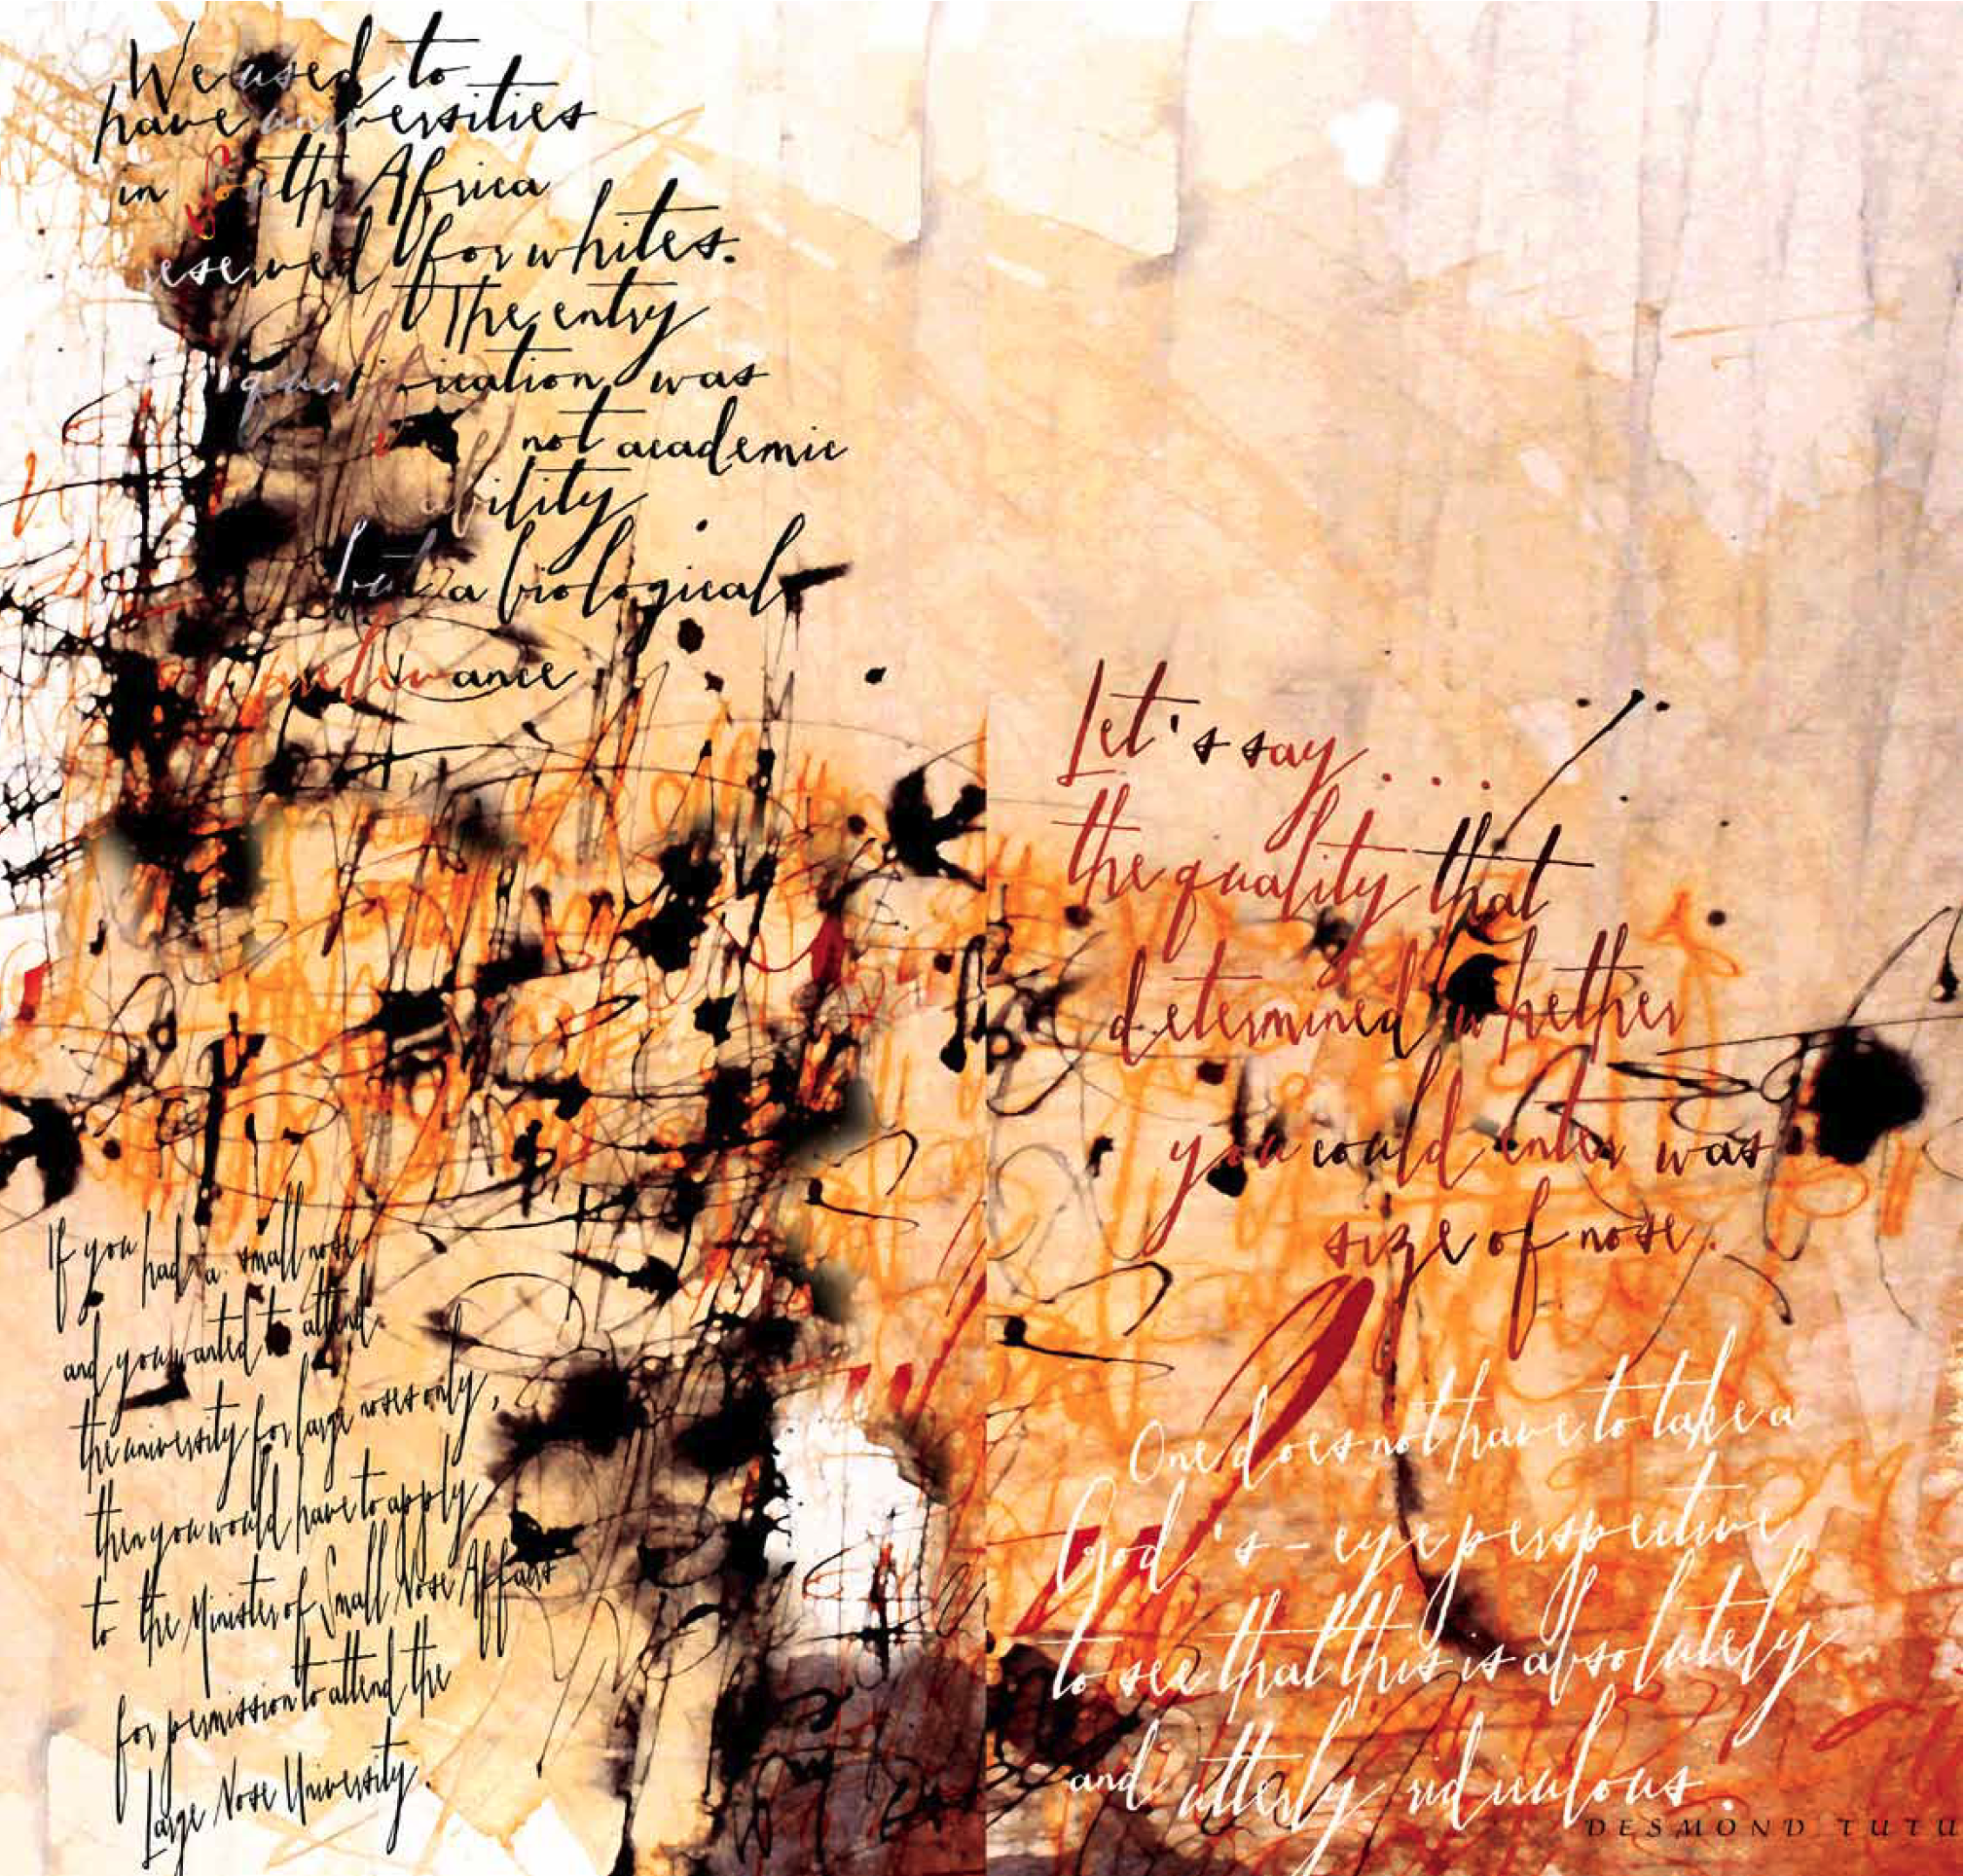 We used to
have universities
in South Africa
reserved for whites.
The entry
qualification was
not academic
ability
but a biological
irrelevance
Let's say . . .
the quality that
determined whether
you could enter was
size of nose.
If you had a small nose
and you wanted to attend
the university for large noses only,
then you would have to apply
to the Minister of Small Nose Affairs
for permission to attend the
Large Nose University.
One does not have to take a
God's-eye perspective
to see that this is absolutely
and utterly ridiculous.
DESMOND TUTU